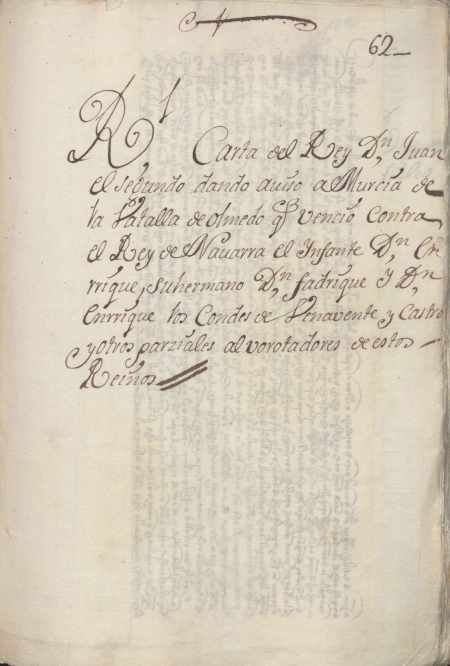 62
Rl Carta del Rey Dn Juan
el segundo dando auiso a Murcia de
la Vatalla de olmedo q vencio Contra
el Rey de Nauarra el Infante Dn En
rrique, suhermano Dn fadrique y Dn
Enrrique los Condes de Venavente y Castro
y otros parziales alvorotadores de estos
Reinos